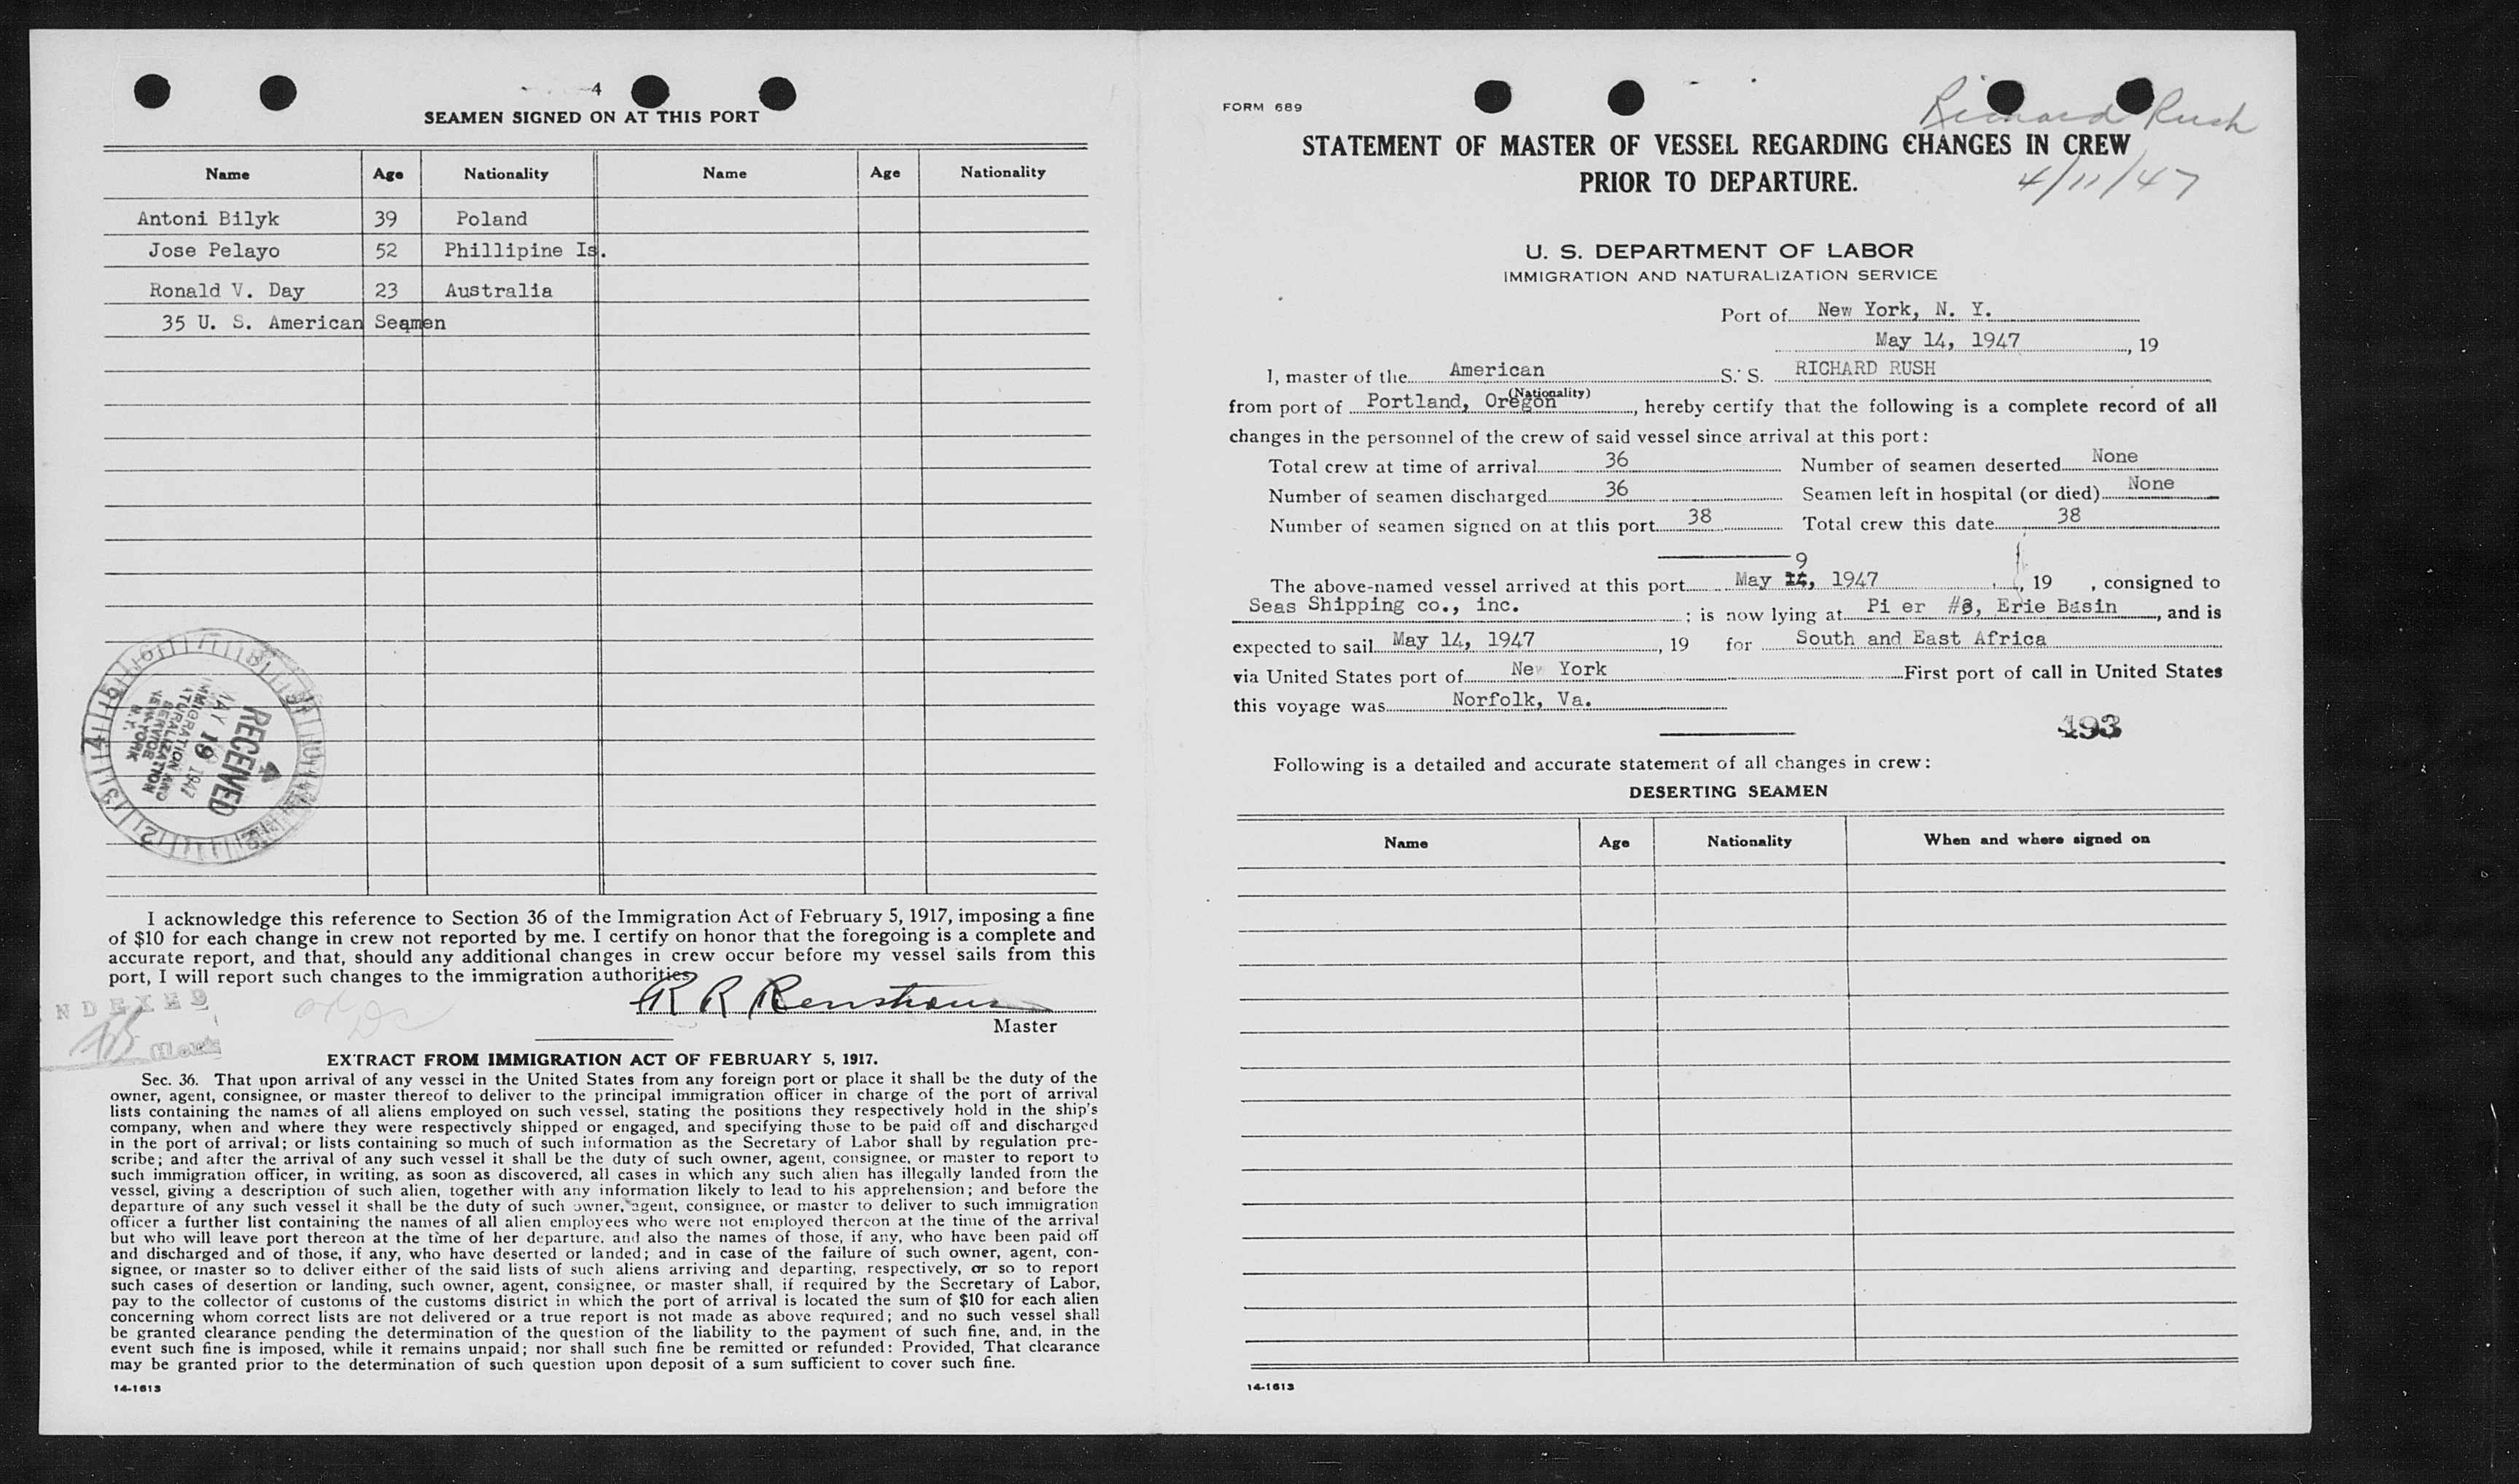 4
SEAMEN SIGNED ON AT THIS PORT
Name Age Nationality Name Age Nationality
Antoni Bilyk 39 Poland
Jose Pelayo 52 Phillipine Is.
Ronald V. Day 23 Australia
35 U. S. American Seamen
RECEIVED
MAY 19 1947
IMMIGRATION AND
NATURALIZATION
SERVICE
NEW YORK
N.Y.
I acknowledge this reference to Section 36 of the Immigration Act of February 5, 1917, imposing a fine
of $10 for each change in crew not reported by me. I certify on honor that the foregoing is a complete and
accurate report, and that, should any additional changes in crew occur before my vessel sails from this
port, I will report such changes to the immigration authorities.
R R Renshaw
Master
NDEXED
EXTRACT FROM IMMIGRATION ACT OF FEBRUARY 5, 1917.
Sec. 36. That upon arrival of any vessel in the United States from any foreign port or place it shall be the duty of the
owner, agent, consignee, or master thereof to deliver to the principal immigration officer in charge of the port of arrival
lists containing the names of all aliens employed on such vessel, stating the positions they respectively hold in the ship's
company, when and where they were respectively shipped or engaged, and specifying those to be paid off and discharged
in the port of arrival; or lists containing so much of such information as the Secretary of Labor shall by regulation pre-
scribe; and after the arrival of any such vessel it shall be the duty of such owner, agent, consignee, or master to report to
such immigration officer, in writing, as soon as discovered, all cases in which any such alien has illegally landed from the
vessel, giving a description of such alien, together with any information likely to lead to his apprehension; and before the
departure of any such vessel it shall be the duty of such owner, agent, consignee, or master to deliver to such immigration
officer a further list containing the names of all alien employees who were not employed thereon at the time of the arrival
but who will leave port thereon at the time of her departure, and also the names of those, if any, who have been paid off
and discharged and of those, if any, who have deserted or landed; and in case of the failure of such owner, agent, con-
signee, or master so to deliver either of the said lists of such aliens arriving and departing, respectively, or so to report
such cases of desertion or landing, such owner, agent, consignee, or master shall, if required by the Secretary of Labor,
pay to the collector of customs of the customs district in which the port of arrival is located the sum of $10 for each alien
concerning whom correct lists are not delivered or a true report is not made as above required; and no such vessel shall
be granted clearance pending the determination of the question of the liability to the payment of such fine, and, in the
event such fine is imposed, while it remains unpaid; nor shall such fine be remitted or refunded: Provided, That clearance
may be granted prior to the determination of such question upon deposit of a sum sufficient to cover such fine.
14-1613
FORM 689
Richard Rush
STATEMENT OF MASTER OF VESSEL REGARDING CHANGES IN CREW
PRIOR TO DEPARTURE.
4/11/47
U. S. DEPARTMENT OF LABOR
IMMIGRATION AND NATURALIZATION SERVICE
Port of New York, N. Y.
May 14, 1947, 19
I, master of the American S. S. RICHARD RUSH
(Nationality)
from port of Portland, Oregon, hereby certify that the following is a complete record of all
changes in the personnel of the crew of said vessel since arrival at this port:
Total crew at time of arrival 36 Number of seamen deserted None
Number of seamen discharged 36 Seamen left in hospital (or died) None
Number of seamen signed on at this port 38 Total crew this date 38
9
The above-named vessel arrived at this port May 14, 1947, 19 , consigned to
Seas Shipping co., inc. ; is now lying at Pi er #3, Erie Basin, and is
expected to sail May 14, 1947, 19 for South and East Africa
via United States port of New York First port of call in United States
this voyage was Norfolk, Va.
493
Following is a detailed and accurate statement of all changes in crew:
DESERTING SEAMEN
Name Age Nationality When and where signed on
14-1613